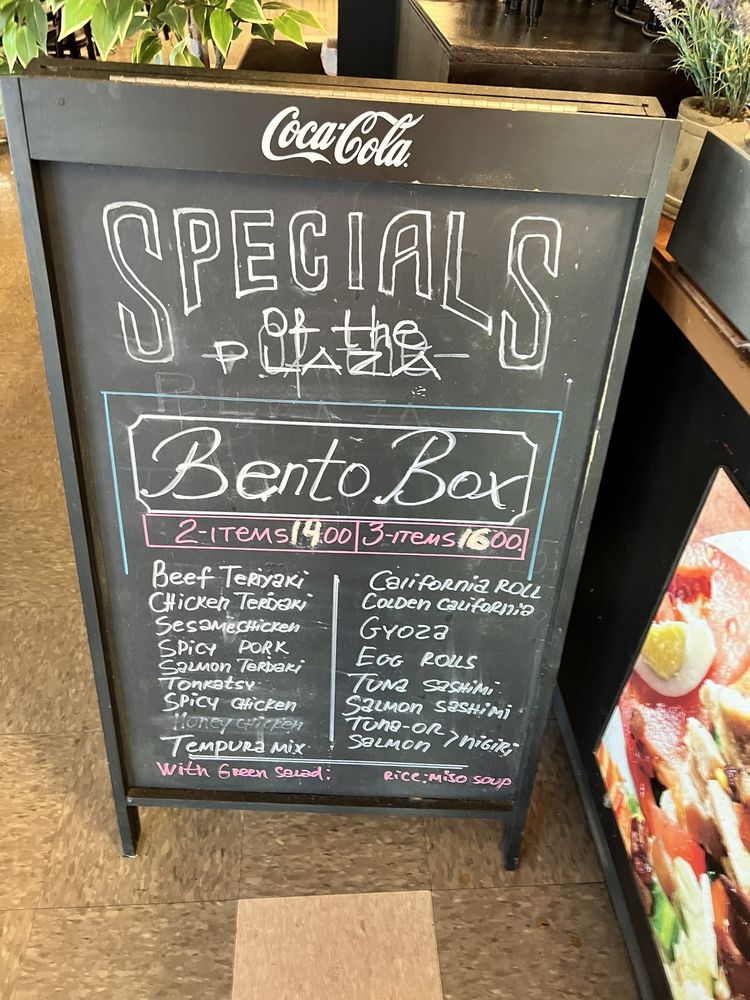 Coca-Cola
SPECIALS
Of the
PLAZA
Bento Box
2-ITEMS 14.00 3-ITEMS 16.00
Beef Teriyaki
Chicken Teriyaki
Sesame chicken
Spicy PORK
Salmon Teriyaki
Tonkatsy
Spicy chicken
Honey chicken
Tempura mix
California ROLL
Golden California
Gyoza
EGG ROLLS
Tuna sashimi
Salmon sashimi
Tuna-OR
Salmon > nigiri
With Green Salad: Rice: miso soup